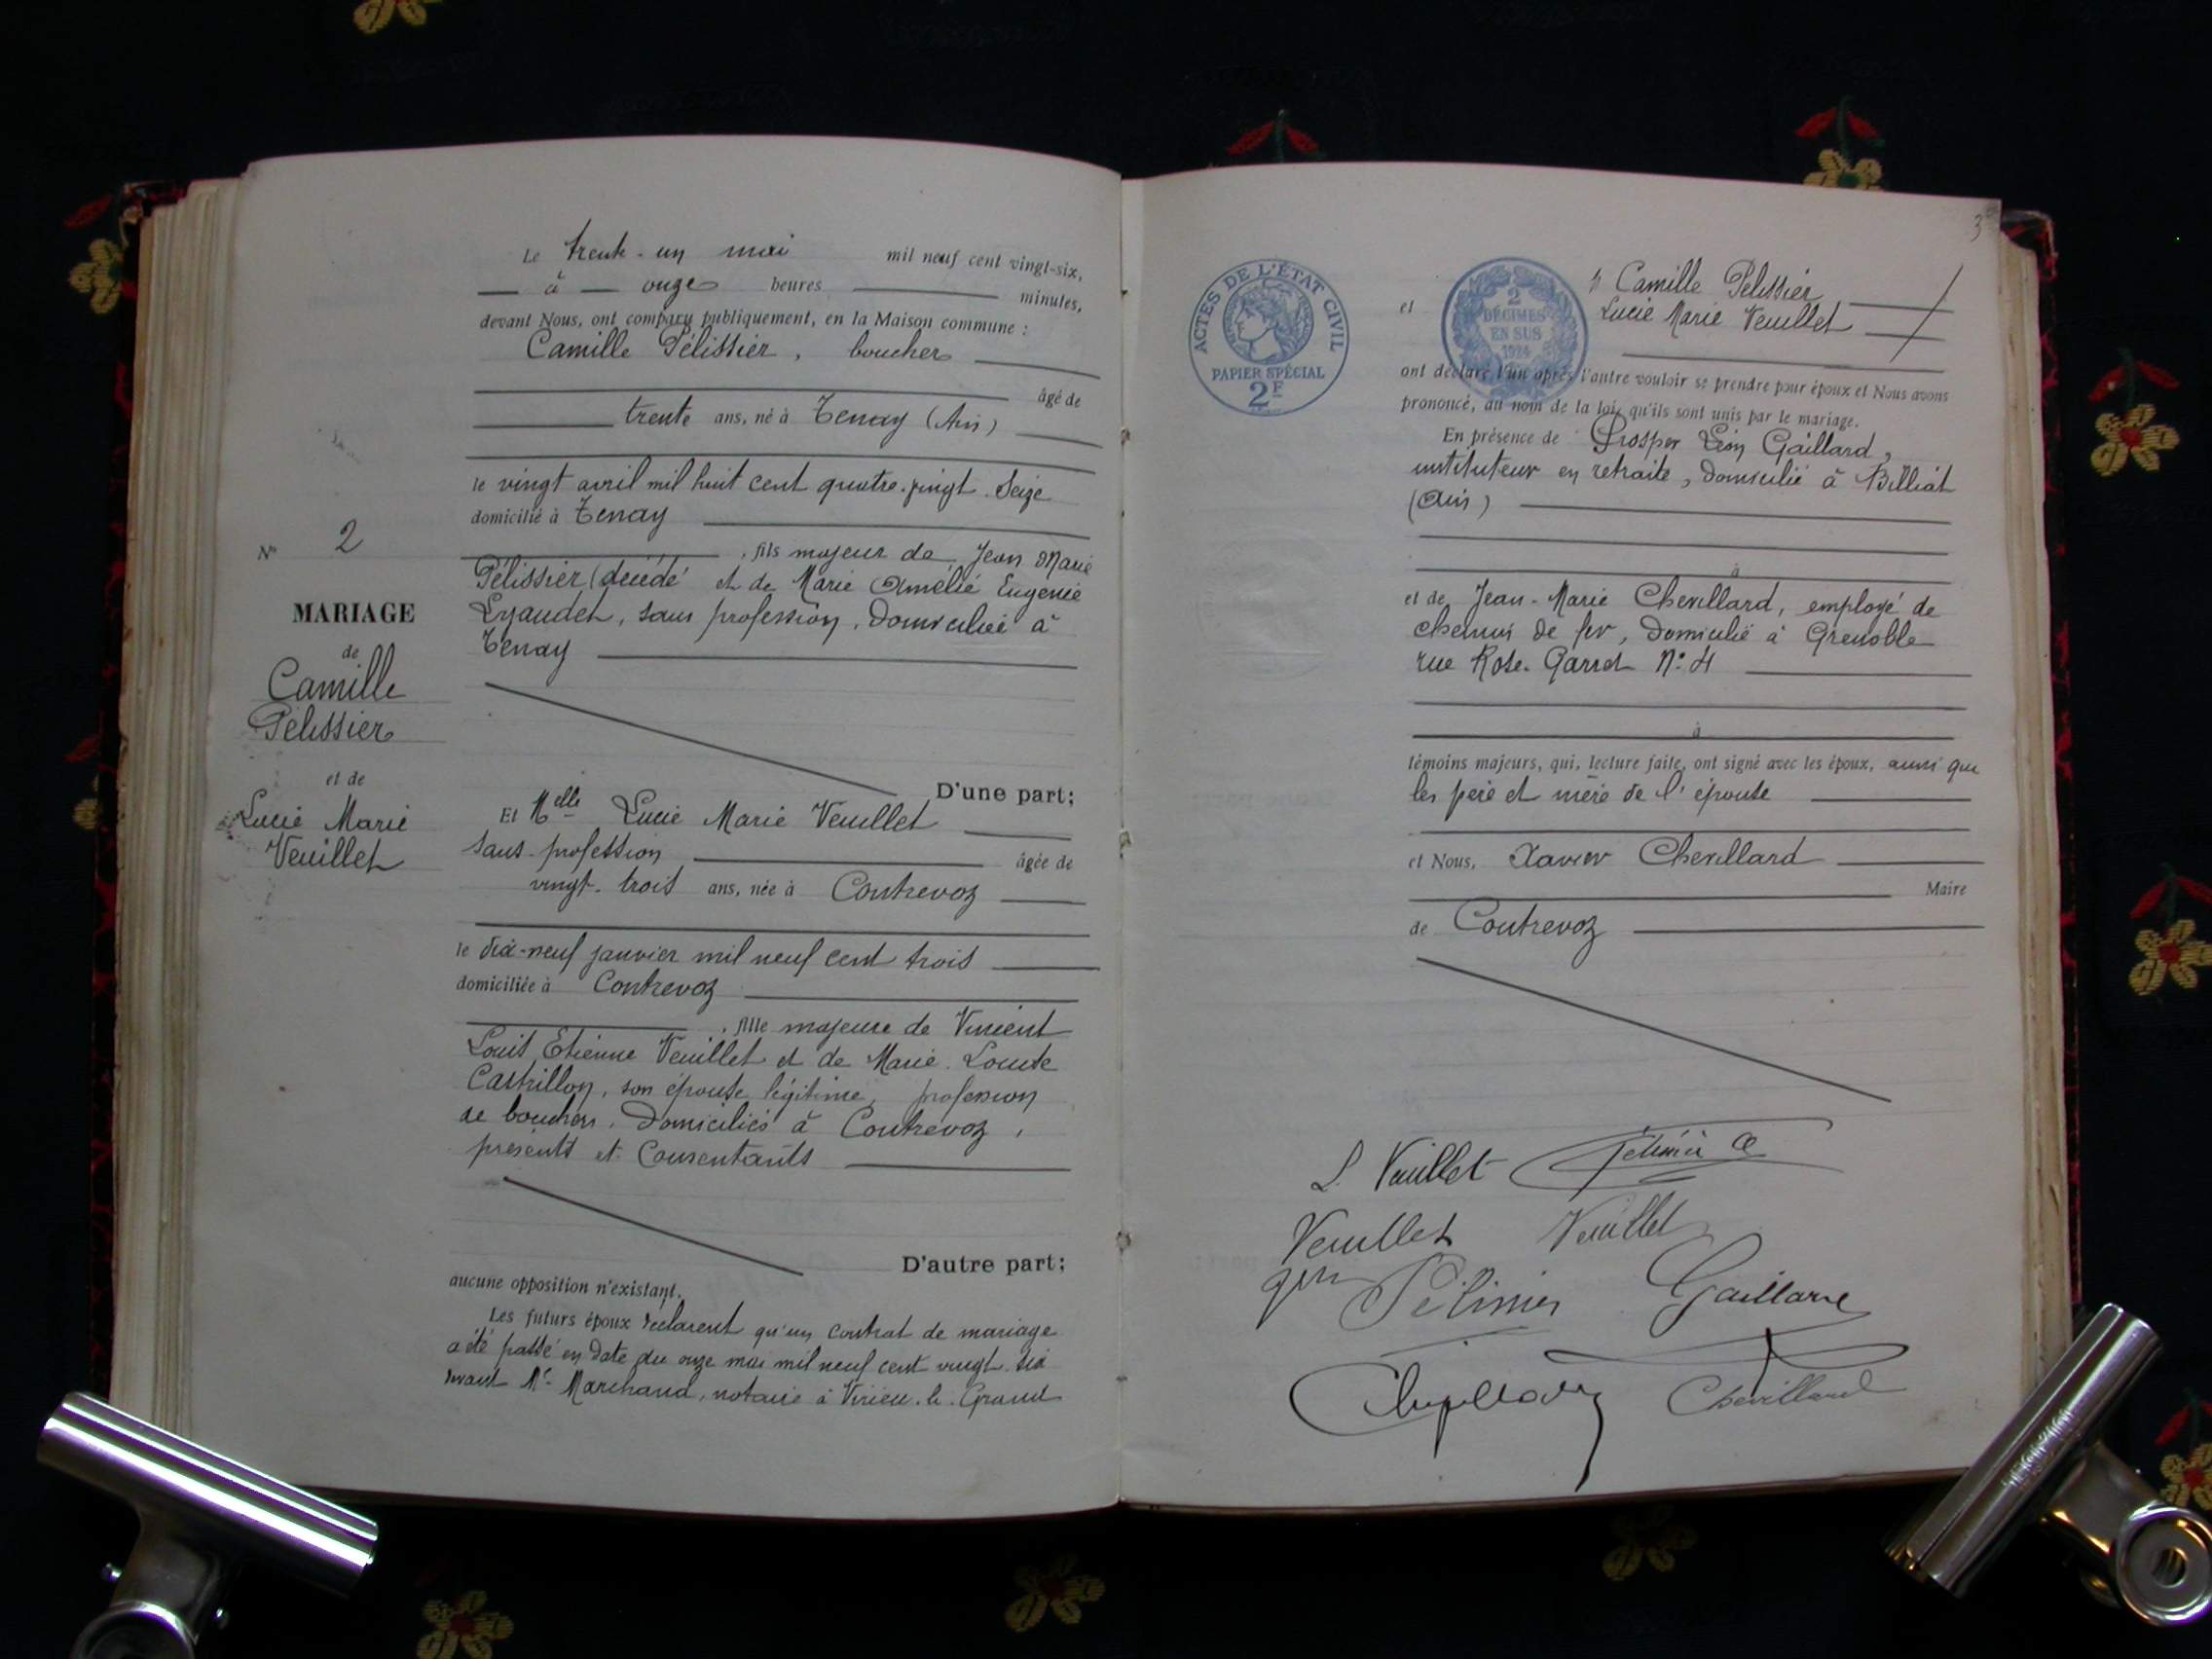 Le trente-un mai mil neuf cent vingt-six,
à onze heures minutes,
devant Nous, ont comparu publiquement, en la Maison commune :
Camille Pélissier, boucher
âgé de
trente ans, né à Tenay (Ain)
le vingt avril mil huit cent quatre-vingt-seize
domicilié à Tenay
, fils majeur de Jean Marie
Pélissier, décédé et de Marie Amélie Eugénie
sans profession, domiciliée à
Tenay
D'une part;
Et Melle Lucie Marie Veuillet
sans profession âgée de
vingt-trois ans, née à Contrevoz
le dix-neuf janvier mil neuf cent trois
domiciliée à Contrevoz
, fille majeure de Vincent
Louis Etienne Veuillet et de Marie Louise
Castrillon, son épouse légitime, profession
de bouchers, domiciliés à Contrevoz,
présents et consentants
D'autre part;
aucune opposition n'existant.
Les futurs époux déclarent qu'un contrat de mariage
a été passé en date du onze mai mil neuf cent vingt-six
devant Me Marchand, notaire à Virieu-le-Grand
N° 2
MARIAGE
de
Camille
Pélissier
et de
Lucie Marie
Veuillet
3
ACTES DE L'ÉTAT CIVIL
PAPIER SPÉCIAL
2F
2
DÉCIMES
EN SUS
1924
Camille Pélissier
et Lucie Marie Veuillet
ont déclaré l'un après l'autre vouloir se prendre pour époux et Nous avons
prononcé, au nom de la loi, qu'ils sont unis par le mariage.
En présence de Prosper Léon Gaillard,
instituteur en retraite, domicilié à Billiat
(Ain)
à
et de Jean-Marie Chevillard, employé de
chemin de fer, domicilié à Grenoble
rue N° 4
à
témoins majeurs, qui, lecture faite, ont signé avec les époux, ainsi que
les père et mère de l'épouse
et Nous, Xavier Chevillard
Maire
de Contrevoz
L. Veuillet Pélissier C
Veuillet Veuillet
Pélissier Gaillard
Chevillard Chevillard